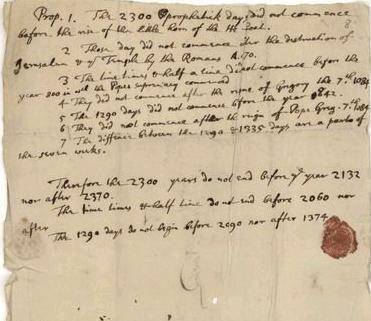 Prop. 1. The 2300 prophetick days did not commence
before the rise of the little horn of the He Goat.
2 Those day did not commence after the destruction of
Jerusalem & ye Temple by the Romans A. 70.
3 The time times & half a time did not commence before the
year 800 in wch the Popes supremacy commenced
4 They did not commence after the reigne of Gregory the 7th. 1084
5 The 1290 days did not commence before the year 842.
6 They did not commence after the reign of Pope Greg. 7th. 1084
7 The diffence between the 1290 & 1335 days are a parts of
the seven weeks.
Therefore the 2300 years do not end before ye year 2132
nor after 2370.
The time times & half time do not end before 2060 nor
after
The 1290 days do not begin before 2090 nor after 1374
8